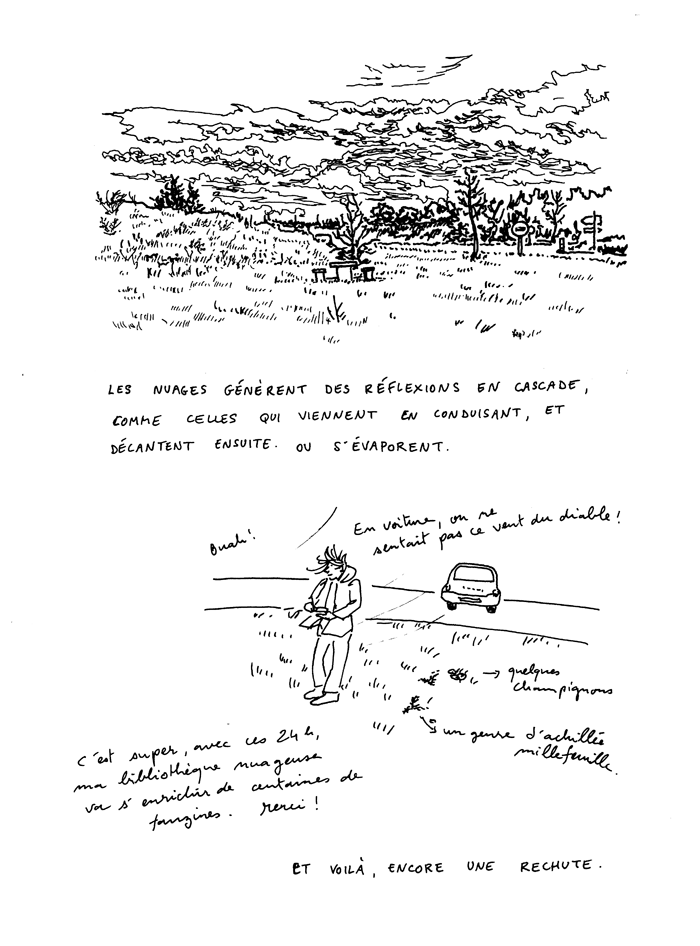 LES NUAGES GÉNÈRENT DES RÉFLEXIONS EN CASCADE,
COMME CELLES QUI VIENNENT EN CONDUISANT, ET
DÉCANTENT ENSUITE. OU S'ÉVAPORENT.
Ouah!
En voiture, on ne
sentait pas ce vent du diable!
→ quelques
champignons
un genre d'achillée
millefeuille.
C'est super, avec ces 24h,
ma bibliothèque nuageuse
va s'enrichir de centaines de
fanzines. Merci!
ET VOILÀ, ENCORE UNE RECHUTE.